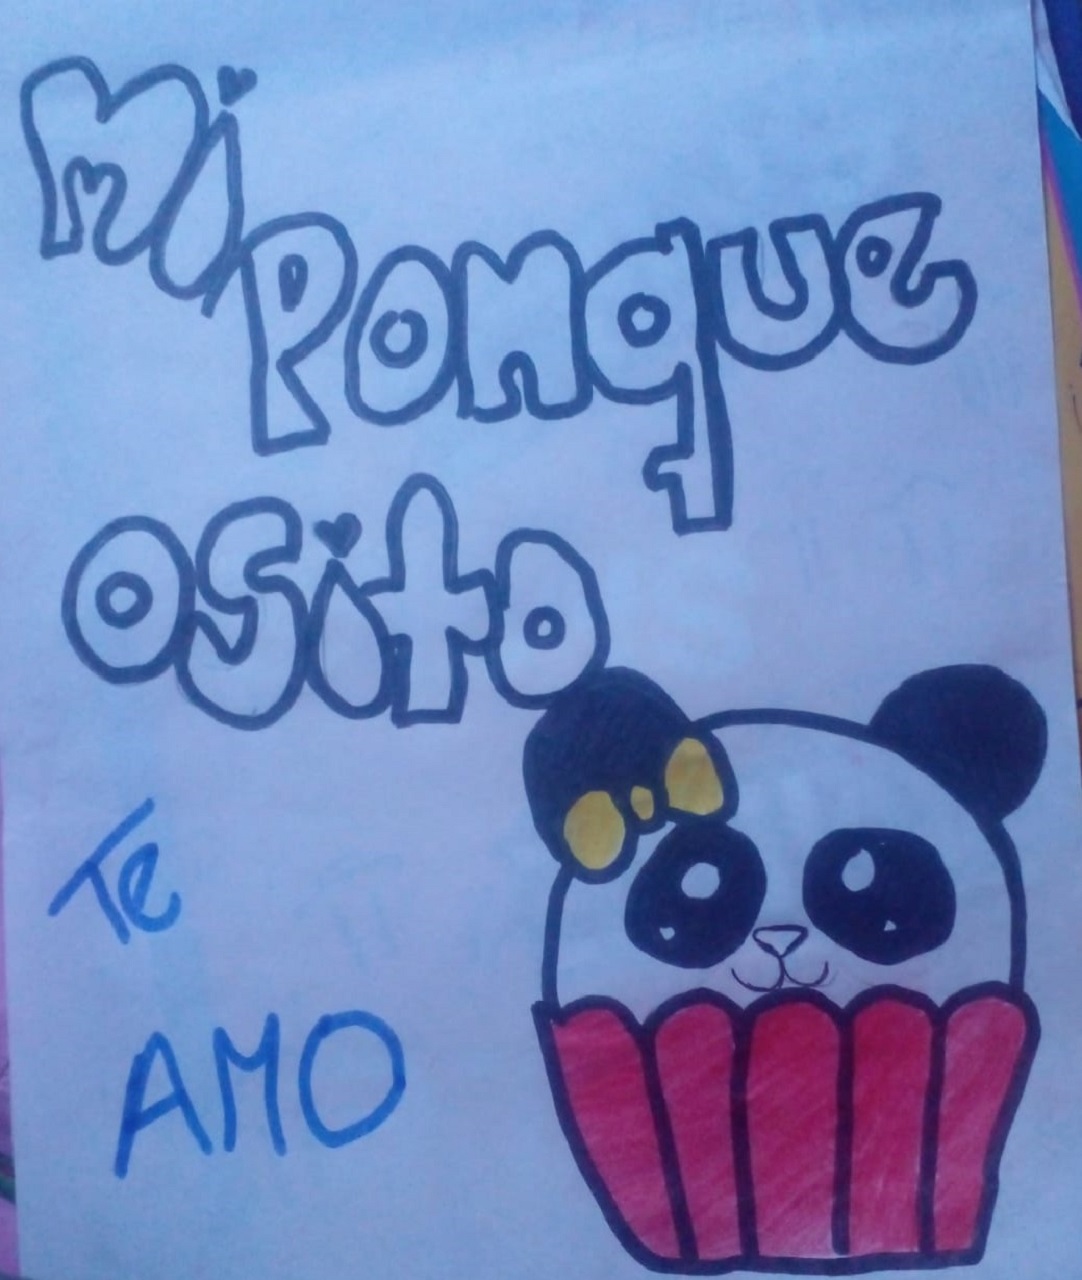 Mi
Ponque
Osito
Te
AMO